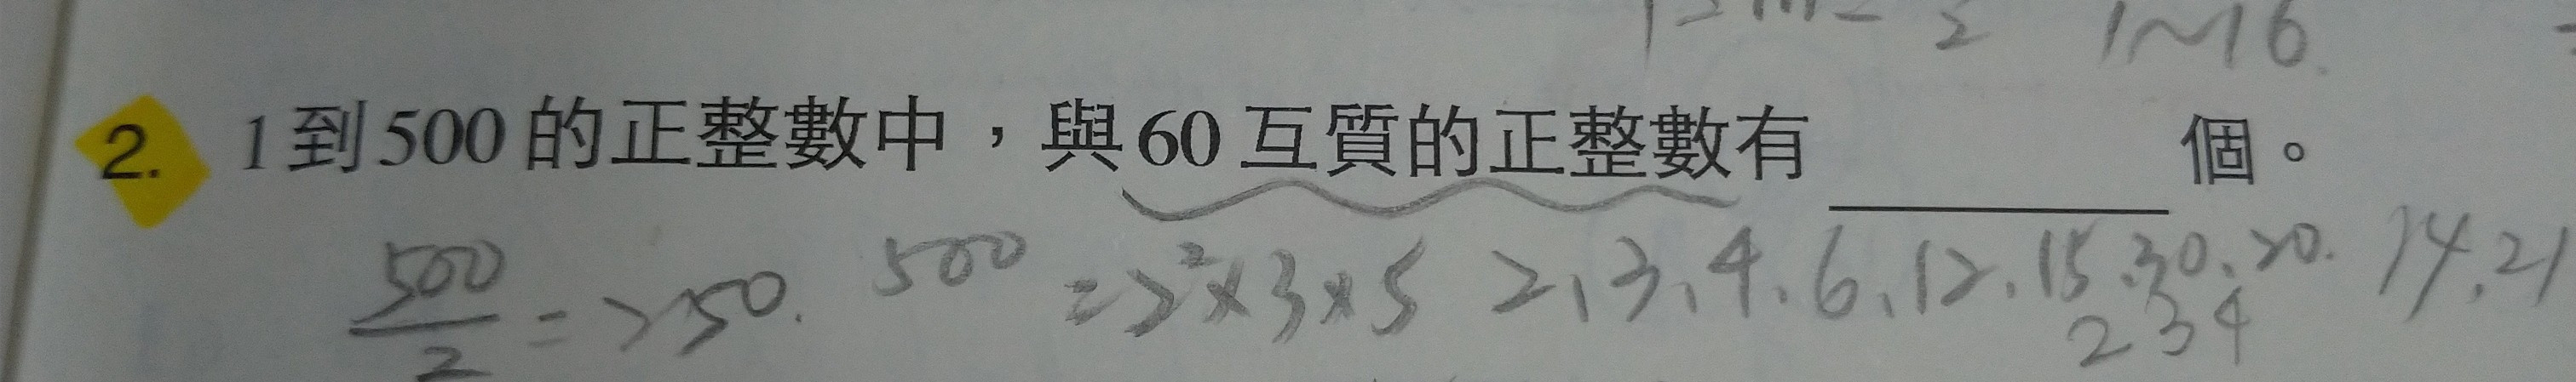 2 1~16
2. 1到500的正整數中,與60互質的正整數有 個。
500/2 = 250. 500 = 2²×3×5 2、3、4、6、12、15、30、20. 14、21
2 3 4